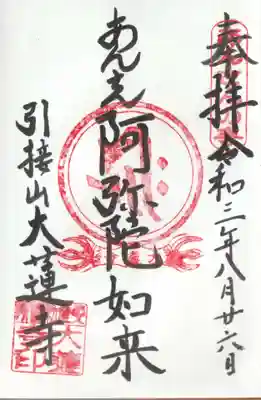 奉拝 令和三年八月廿六日
あんざん 阿弥陀如来
引接山大蓮寺